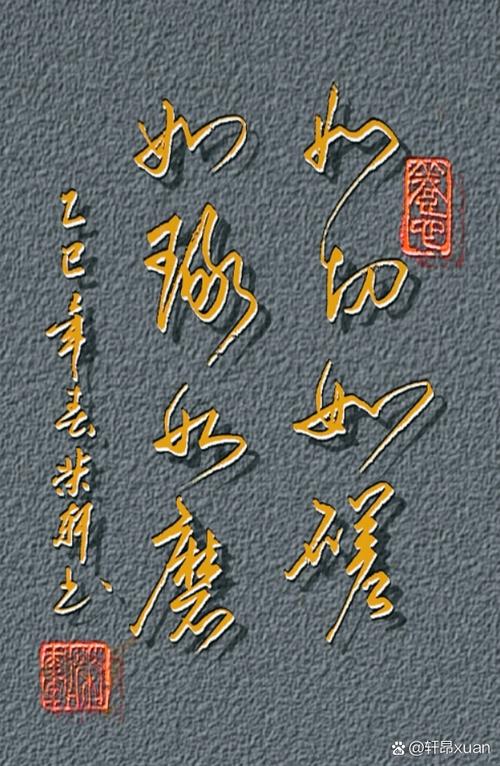 如切如磋
如琢如磨
乙巳年春荣轩书
@轩昂xuan